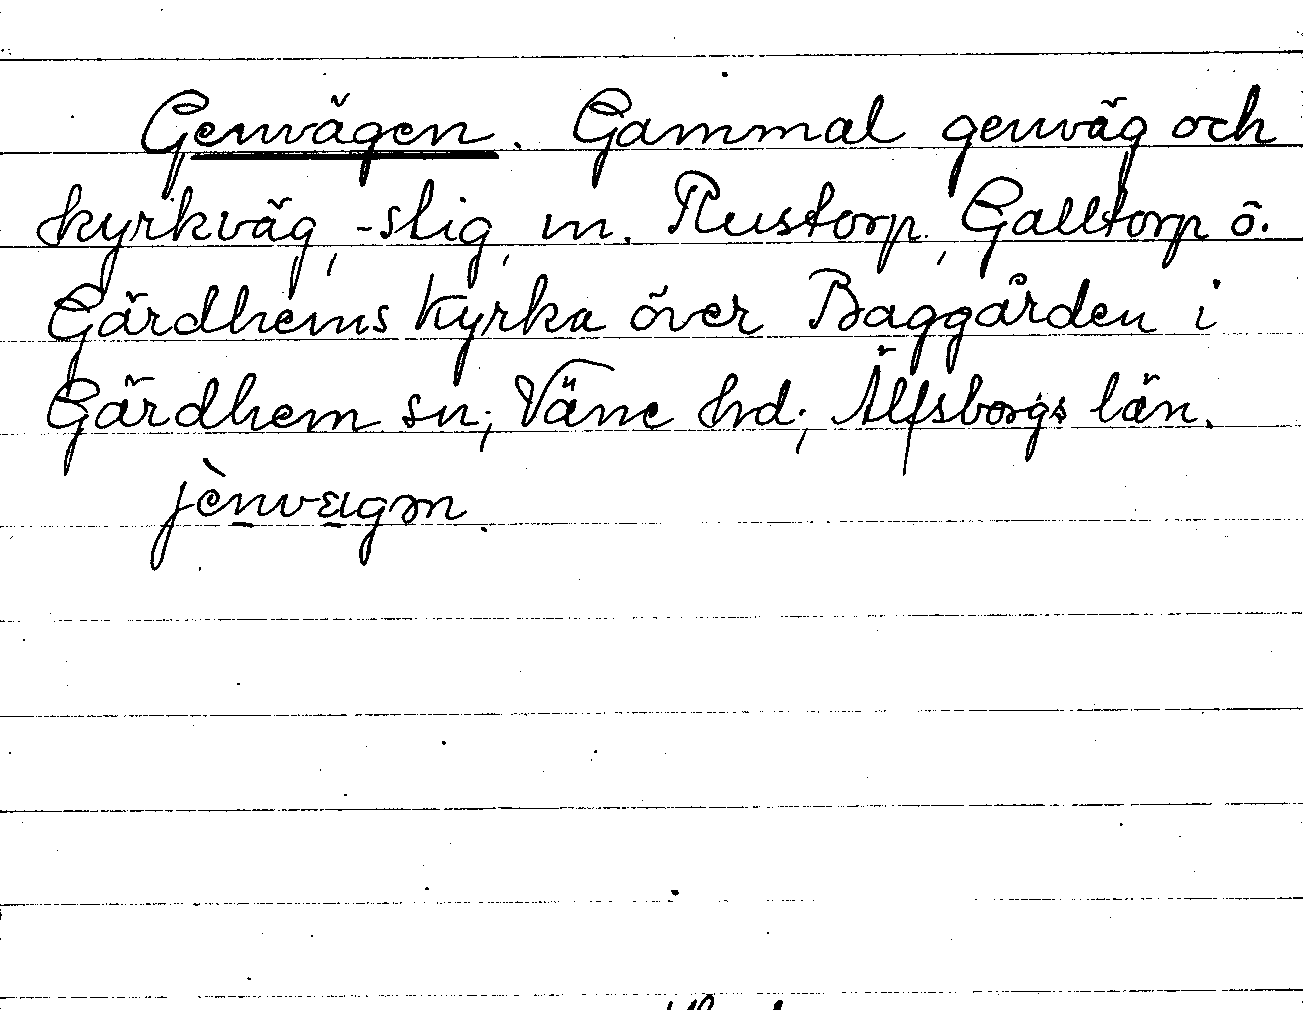 Genvägen. Gammal genväg och
kyrkväg, -stig, m. Rustorp, Galltorp o.
Gärdhems kyrka över Baggården i
Gärdhem sn; Väne hd; Älfsborgs län.
jènvägən.